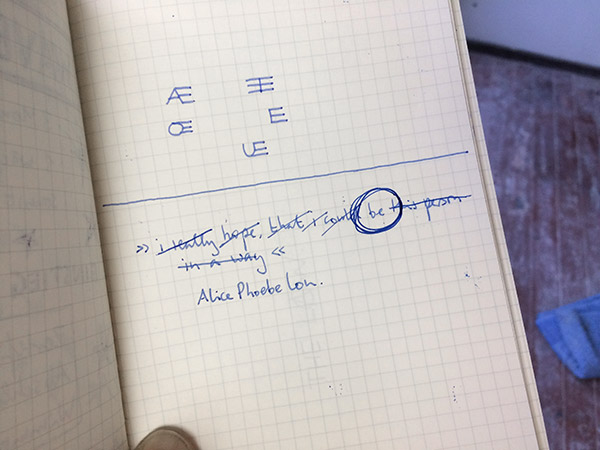 Æ Œ UE E
» i really hope, that i could be this person
in a way «
Alice Phoebe Lou.